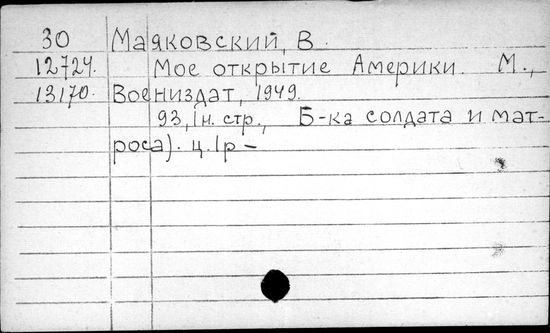 30 Маяковский, В.
12724. Мое открытие Америки. М.,
13170. Воениздат, 1949.
93,1н. стр., Б-ка солдата и мат-
роса). ц.1р –